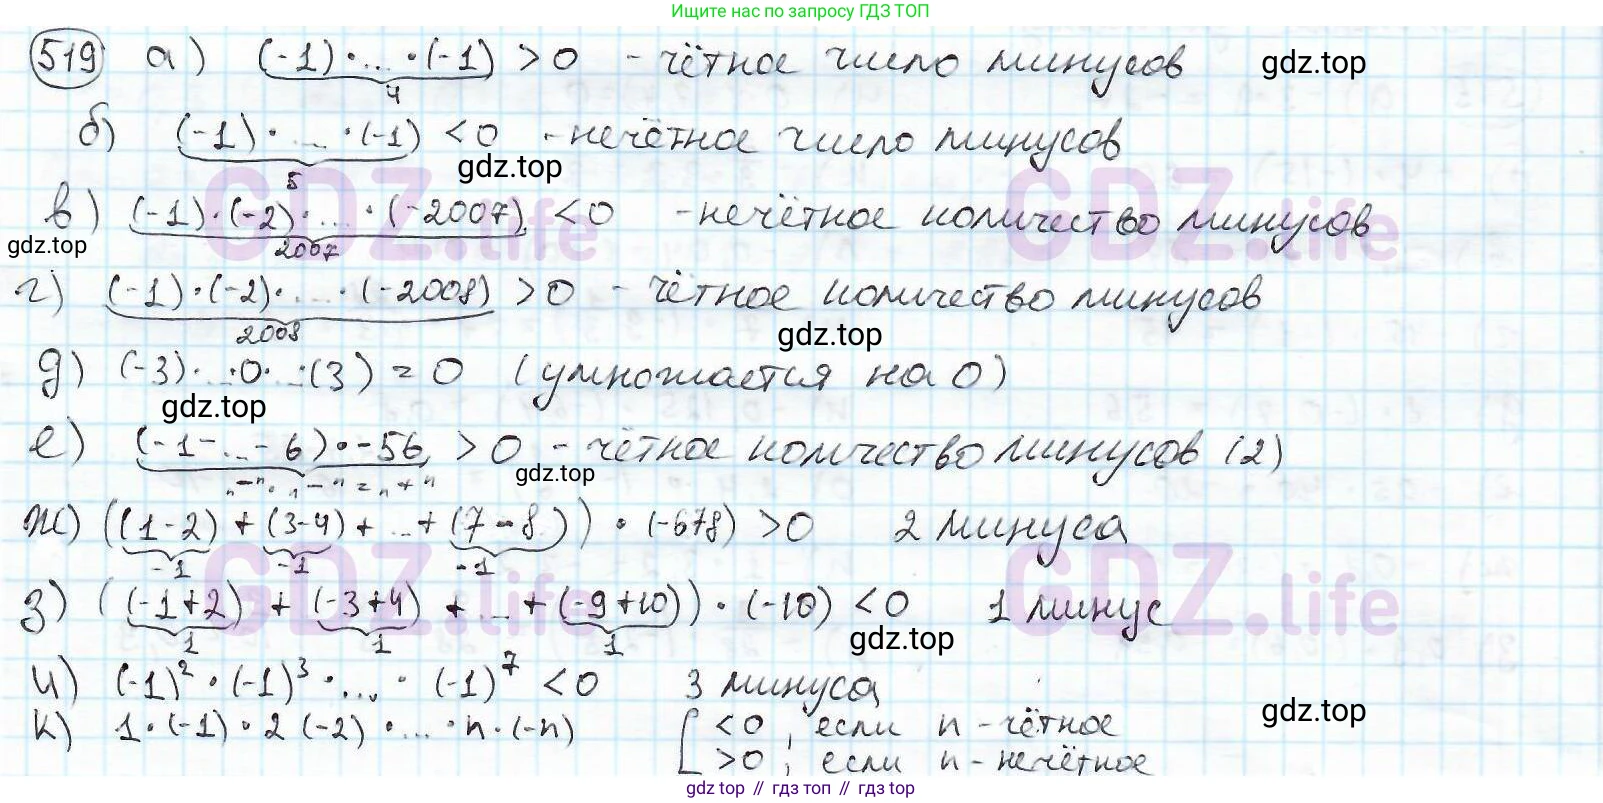 Ищите нас по запросу ГДЗ ТОП
519 а) (-1)·...·(-1) > 0 - чётное число минусов gdz.top
4
б) (-1)·...·(-1) < 0 - нечётное число минусов
gdz.top
5
в) (-1)·(-2)·...·(-2007) < 0 - нечётное количество минусов
gdz.top
2007
г) (-1)·(-2)·...·(-2008) > 0 - чётное количество минусов
2008
gdz.top
д) (-3)·...·0·...·(3) = 0 (умножается на 0)
gdz.top
е) (-1-...-6)·-56 > 0 - чётное количество минусов (2)
gdz.top
"-"·"-"="+"
ж) ((1-2)+(3-4)+...+(7-8))·(-678) > 0 2 минуса
-1 -1 -1
з) ((-1+2)+(-3+4)+...+(-9+10))·(-10) < 0 1 минус
1 1 1
gdz.top
и) (-1)²·(-1)³·...·(-1)⁷ < 0 3 минуса
gdz.top
к) 1·(-1)·2(-2)·...·n·(-n) [ < 0, если n - чётное
> 0, если n - нечётное
gdz top // гдз топ // gdz.top
GDZ.life
GDZ.life
GDZ.life
GDZ.life